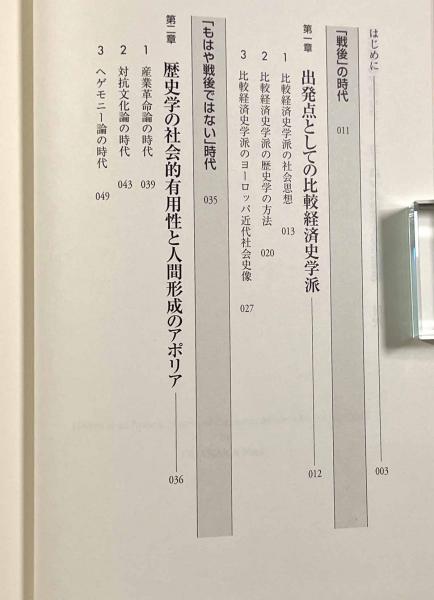 はじめに 003
「戦後」の時代 011
第一章 出発点としての比較経済史学派 012
1 比較経済史学派の社会思想 013
2 比較経済史学派の歴史学の方法 020
3 比較経済史学派のヨーロッパ近代社会史像 027
「もはや戦後ではない」時代 035
第二章 歴史学の社会的有用性と人間形成のアポリア 036
1 産業革命論の時代 039
2 対抗文化論の時代 043
3 ヘゲモニー論の時代 049